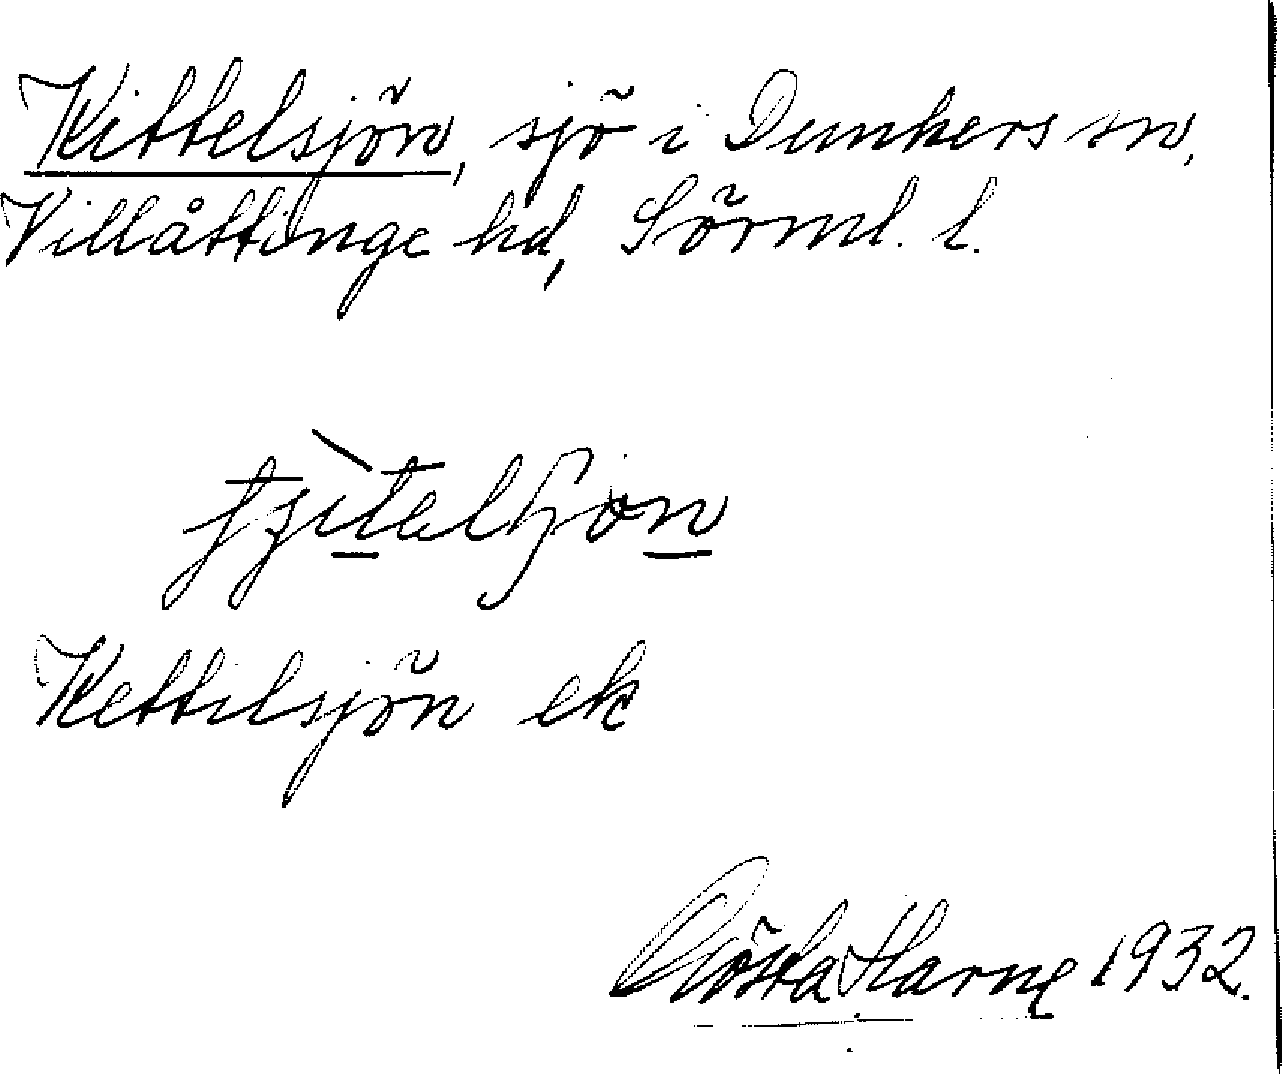 Kittelsjön, sjö i Dunkers sn,
Villåttinge hd, Sörml. l.
Kettilsjön ek
Gösta Harne 1932.